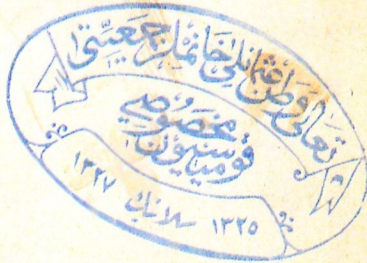 تعالئ وطن عثمانلی خانملر جمعیتی
قومیسیون مخصوصی
١٣٢٥ سلانیك ١٣٢٧